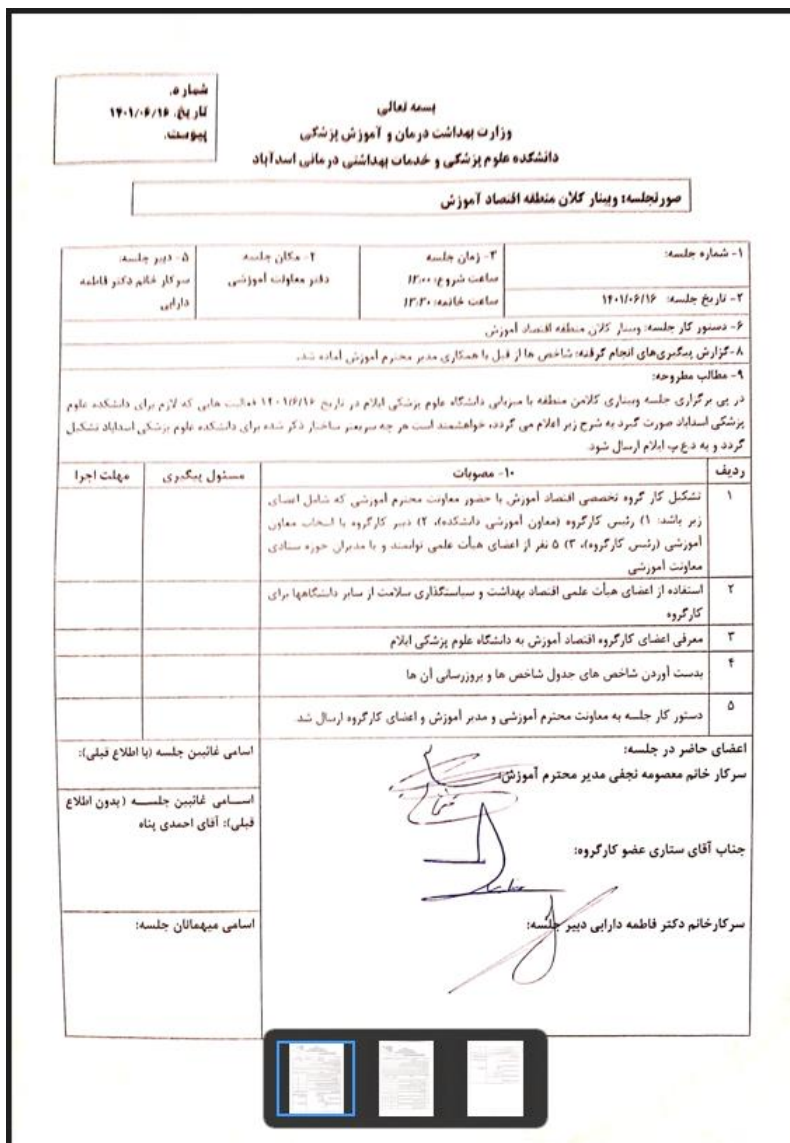 شماره:
تاریخ: ۱۴۰۱/۰۶/۱۶
پیوست:
بسمه تعالی
وزارت بهداشت درمان و آموزش پزشکی
دانشکده علوم پزشکی و خدمات بهداشتی درمانی اسدآباد
صورتجلسه: وبینار کلان منطقه اقتصاد آموزش
۱- شماره جلسه:
۲- تاریخ جلسه: ۱۴۰۱/۰۶/۱۶
۳- زمان جلسه
ساعت شروع: ۱۲:۰۰
ساعت خاتمه: ۱۳:۳۰
۴- مکان جلسه
دفتر معاونت آموزشی
۵- دبیر جلسه:
سرکار خانم دکتر فاطمه
دارابی
۶- دستور کار جلسه: وبینار کلان منطقه اقتصاد آموزش
۸-گزارش پیگیری‌های انجام گرفته: شاخص ها از قبل با همکاری مدیر محترم آموزش آماده شد.
۹- مطالب مطروحه:
در پی برگزاری جلسه وبیناری کلامن منطقه با میزبانی دانشگاه علوم پزشکی ایلام در تاریخ ۱۴۰۱/۶/۱۶ فعالیت هایی که لازم برای دانشکده علوم
پزشکی اسداباد صورت گیرد به شرح زیر اعلام می گردد، خواهشمند است هر چه سریعتر ساختار ذکر شده برای دانشکده علوم پزشکی اسداباد تشکیل
گردد و به د.ع.پ ایلام ارسال شود.
ردیف ۱۰- مصوبات مسئول پیگیری مهلت اجرا
۱ تشکیل کار گروه تخصصی اقتصاد آموزش با حضور معاونت محترم آموزشی که شامل اعضای
زیر باشد: ۱) رئیس کارگروه (معاون آموزشی دانشکده)، ۲) دبیر کارگروه با انتخاب معاون
آموزشی (رئیس کارگروه)، ۳) ۵ نفر از اعضای هیأت علمی توانمند و یا مدیران حوزه ستادی
معاونت آموزشی
۲ استفاده از اعضای هیأت علمی اقتصاد بهداشت و سیاستگذاری سلامت از سایر دانشگاهها برای
کارگروه
۳ معرفی اعضای کارگروه اقتصاد آموزش به دانشگاه علوم پزشکی ایلام
۴ بدست آوردن شاخص های جدول شاخص ها و بروزرسانی آن ها
۵ دستور کار جلسه به معاونت محترم آموزشی و مدیر آموزش و اعضای کارگروه ارسال شد.
اعضای حاضر در جلسه:
سرکار خانم معصومه نجفی مدیر محترم آموزش:
جناب آقای ستاری عضو کارگروه:
سرکارخانم دکتر فاطمه دارابی دبیر جلسه:
اسامی غائبین جلسه (با اطلاع قبلی):
اسامی غائبین جلسه (بدون اطلاع
قبلی): آقای احمدی پناه
اسامی میهمانان جلسه: